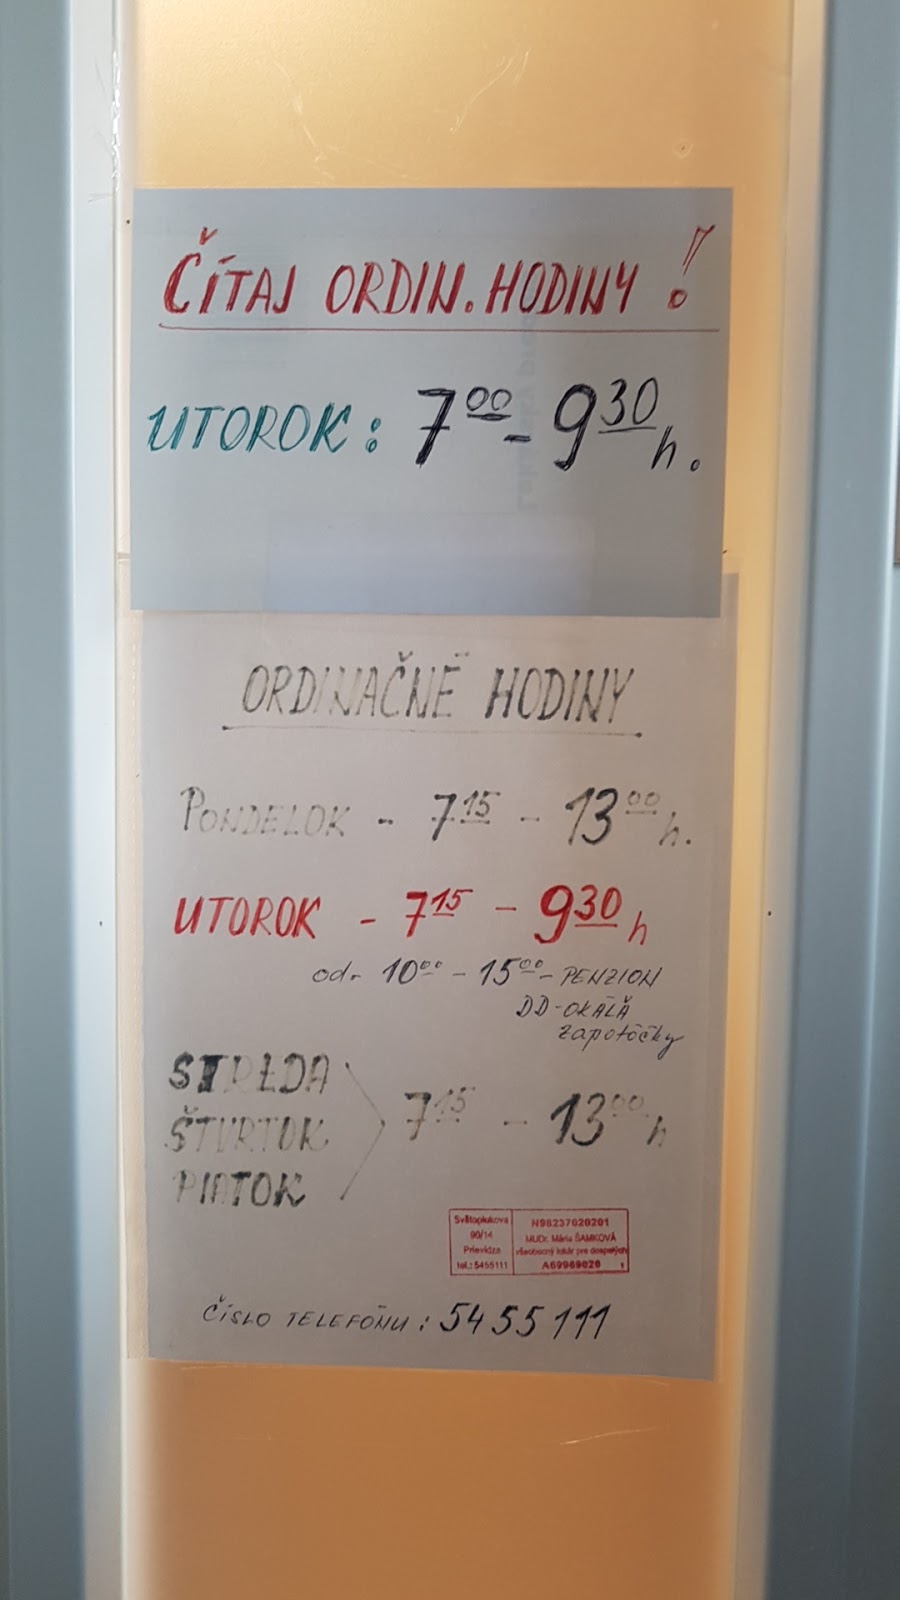 ČÍTAJ ORDIN. HODINY !
UTOROK : 7 00 - 9 30 h.
ORDINAČNÉ HODINY
PONDELOK - 7 15 - 13 00 h.
UTOROK - 7 15 - 9 30 h
od - 10 00 - 15 00 - PENZION
DD - OKÁĽA
Zapotôčky
STREDA
ŠTVRTOK 7 15 - 13 00 h
PIATOK
Svätoplukova
90/14
Prievidza
tel.: 5455111
N98237020201
MUDr. Mária ŠAMKOVÁ
všeobecný lekár pre dospelých
A69969020 1
ČÍSLO TELEFÓNU : 54 55 111